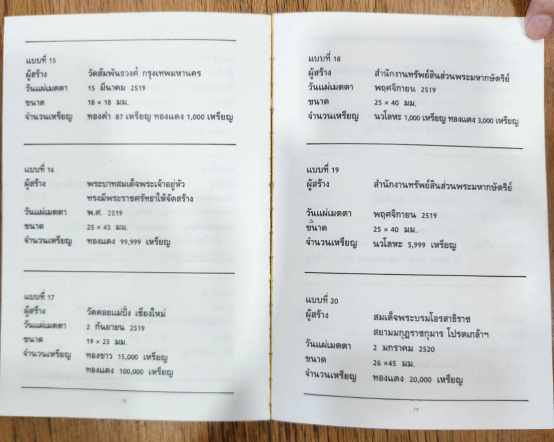 แบบที่ 15
ผู้สร้าง วัดสัมพันธวงศ์ กรุงเทพมหานคร
วันแผ่เมตตา 15 มีนาคม 2519
ขนาด 18 × 18 มม.
จำนวนเหรียญ ทองคำ 87 เหรียญ ทองแดง 1,000 เหรียญ
แบบที่ 16
ผู้สร้าง พระบาทสมเด็จพระเจ้าอยู่หัว
ทรงมีพระราชศรัทธาให้จัดสร้าง
วันแผ่เมตตา พ.ศ. 2519
ขนาด 25 × 43 มม.
จำนวนเหรียญ ทองแดง 99,999 เหรียญ
แบบที่ 17
ผู้สร้าง วัดดอยแม่ปั๋ง เชียงใหม่
วันแผ่เมตตา 2 กันยายน 2519
ขนาด 19 × 23 มม.
จำนวนเหรียญ ทองขาว 15,000 เหรียญ
ทองแดง 100,000 เหรียญ
แบบที่ 18
ผู้สร้าง สำนักงานทรัพย์สินส่วนพระมหากษัตริย์
วันแผ่เมตตา พฤศจิกายน 2519
ขนาด 25 × 40 มม.
จำนวนเหรียญ นวโลหะ 1,000 เหรียญ ทองแดง 3,000 เหรียญ
แบบที่ 19
ผู้สร้าง สำนักงานทรัพย์สินส่วนพระมหากษัตริย์
วันแผ่เมตตา พฤศจิกายน 2519
ขนาด 25 × 40 มม.
จำนวนเหรียญ นวโลหะ 5,999 เหรียญ
แบบที่ 20
ผู้สร้าง สมเด็จพระบรมโอรสาธิราช
สยามมกุฎราชกุมาร โปรดเกล้าฯ
วันแผ่เมตตา 2 มกราคม 2520
ขนาด 26 ×45 มม.
จำนวนเหรียญ ทองแดง 20,000 เหรียญ